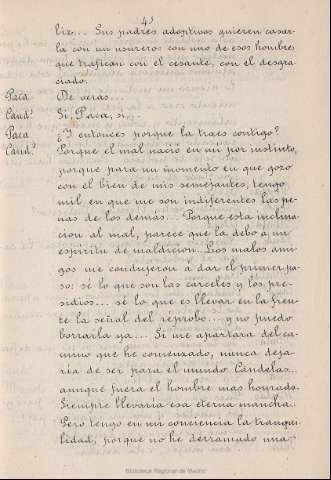 43
liz... Sus padres adoptivos quieren casar-
la con un usurero: con uno de esos hombres
que trafican con el cesante, con el desgra-
ciado.
Paca De veras...
Cand.s Si, Paca, si...
Paca ¿Y entonces porque la traes contigo?
Cand.s Porque el mal nació en mí por instinto,
porque para un momento en que gozo
con el bien de mis semejantes, tengo
mil en que me son indiferentes las pe-
nas de los demás... Porque esta inclina-
cion al mal, parece que la debo á un
espíritu de maldicion. Los malos ami-
gos me condujeron á dar el primer pa-
so: sé lo que son las carceles y los pre-
sidios... sé lo que es llevar en la fren-
te la señal del réprobo... y no puedo
borrarla ya... Si me apartara del ca-
mino que he comenzado, nunca deja-
ria de ser para el mundo Candelas...
aunque fuera el hombre mas honrado.
Siempre llevaria esa eterna mancha.
Pero tengo en mi conciencia la tranqui-
lidad, porque no he derramado una
Biblioteca Regional de Madrid